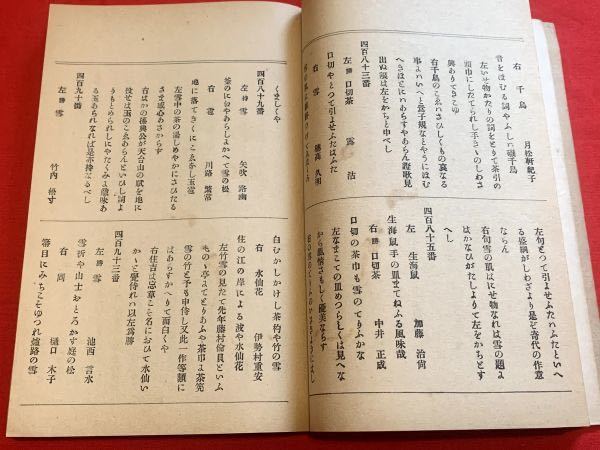 右 千鳥 月松軒紀子
音をはむる詞やふしい磯千鳥
左いせ物かたりの詞をとりて茶引の
頭巾にしたてられし手きゝのしわさ
興ありてきこゆ
右千鳥のこゑハさひしくもの哀なる
事よハいへと 子規なとやうにほむ
へきほとにハあらすやあらん證歌見
出ぬ程は左をかちと申べし
四百八十三番
左勝 口切茶 露沾
口切やとつて引よせふたはふた
右 雪 久明
左句とつて引よせふたハふたといへ
る盛綱がしわざより是ぞ奇代の作意
ならん
右句雪の肌はにせ物なれは雪の題よ
はかなひがたしよりて左をかちとす
へし
四百八十五番
左 生海鼠 加藤 治尙
生海鼠手の皿まてねふる風味哉
右勝 口切茶 中井 正成
口切の茶巾も雪のてりふかな
左なまこての皿めつらしくは見へな
から風情さもしく優美ならす
くましくや
四百八十九番
左持 雪 矢吹 路幽
茶のに匂やあらしよかへて雪の松
右 雹 川路 繁常
地に落てきくにこゑ有玉霰
左雪中の茶の湯しめやかにさひたる
さま感心あさからす
右はかの孫興公が天台山の賦を地に
投せは玉のこゑあらんといひし詞よ
うもとめられしにやたくみよ興味あ
る玉あられなれば是亦持なるべし
四百九十番
左勝 雪 竹内 裕寸
白むかしかけし茶杓や竹の雪
右 水仙花 伊勢村重安
住の江の岸による波や水仙花
左竹雪の見たて先年藤村傭員といふ
ものゝ亭よてとりあふや茶巾よ茶筅
雪の竹と予も申侍し又此一作等類に
はあらすかへりて面白くや
右住吉は忘草こそ名におひて水仙い
かゝと覺侍れハ以左爲勝
四百九十三番
左勝 雪 池西 言水
雪折や山士おとろかす庭の松
右 同 樋口 木子
箒目にみちこそゆつれ爐路の雪